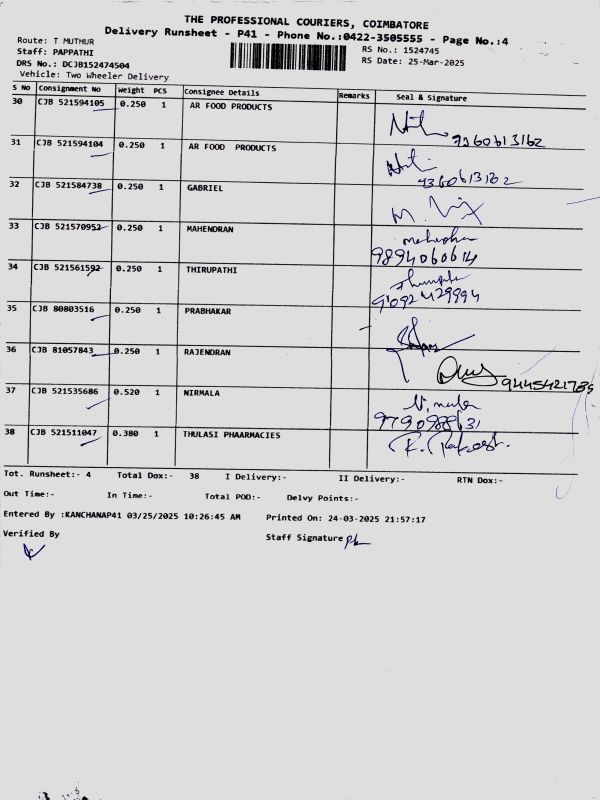 THE PROFESSIONAL COURIERS, COIMBATORE
Delivery Runsheet - P41 - Phone No.:0422-3505555 - Page No.:4
Route: T MUTHUR
RS No.: 1524745
Staff: PAPPATHI
RS Date: 25-Mar-2025
DRS No.: DCJB152474504
Vehicle: Two Wheeler Delivery
S No Consignment No Weight PCS Consignee Details Remarks Seal & Signature
30 CJB 521594105 0.250 1 AR FOOD PRODUCTS
9360613162
31 CJB 521594104 0.250 1 AR FOOD PRODUCTS
9360613162
32 CJB 521584738 0.250 1 GABRIEL
33 CJB 521570952 0.250 1 MAHENDRAN
9894060614
34 CJB 521561592 0.250 1 THIRUPATHI
35 CJB 80803516 0.250 1 PRABHAKAR
36 CJB 81057843 0.250 1 RAJENDRAN
37 CJB 521535686 0.520 1 NIRMALA
38 CJB 521511047 0.380 1 THULASI PHAARMACIES
Tot. Runsheet:- 4 Total Dox:- 38 I Delivery:- II Delivery:- RTN Dox:-
Out Time:- In Time:- Total POD:- Delvy Points:-
Entered By :KANCHANAP41 03/25/2025 10:26:45 AM Printed On: 24-03-2025 21:57:17
Verified By Staff Signature